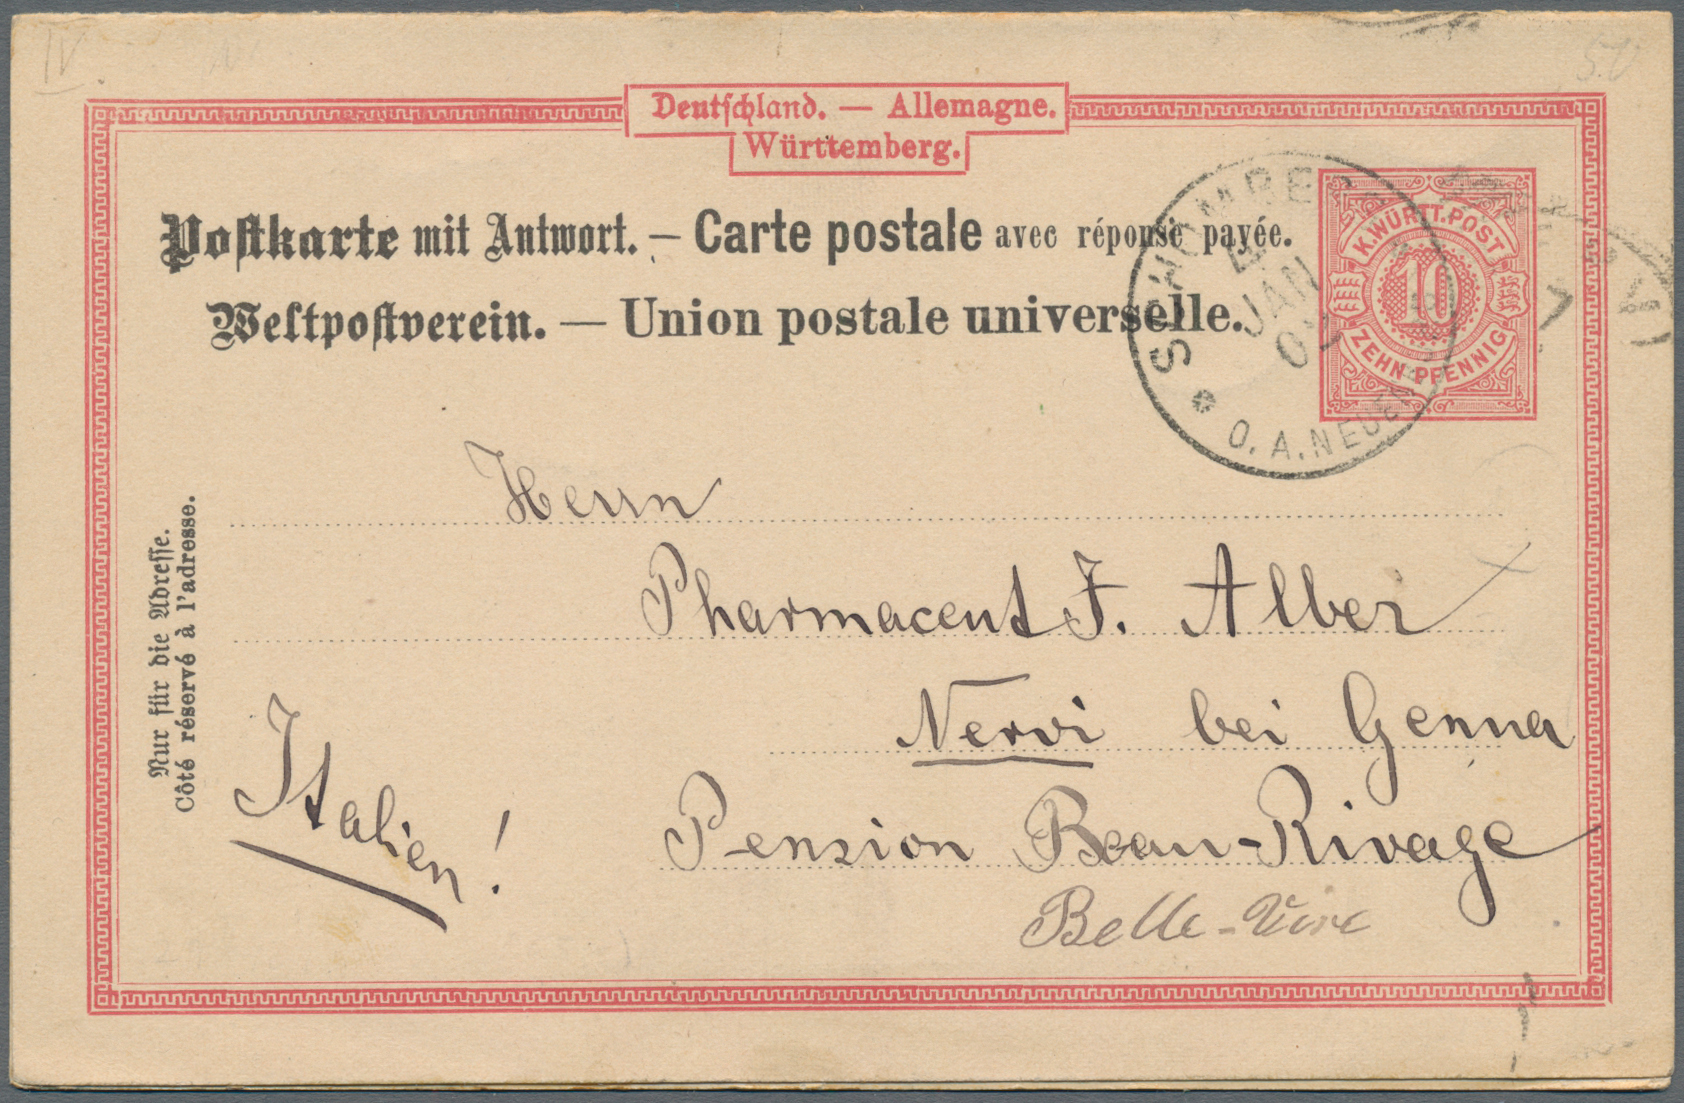 IV.
Deutschland. — Allemagne.
Württemberg.
Postkarte mit Antwort. — Carte postale avec réponse payée.
Weltpostverein. — Union postale universelle.
K.WÜRTT.POST
10
ZEHN PFENNIG
JAN
02
O.A.NEUEN
Nur für die Adresse.
Côté réservé à l'adresse.
Herrn
Pharmaceut F. Alber
Nervi bei Genua
Italien!
Pension Beau-Rivage
Belle-Vive